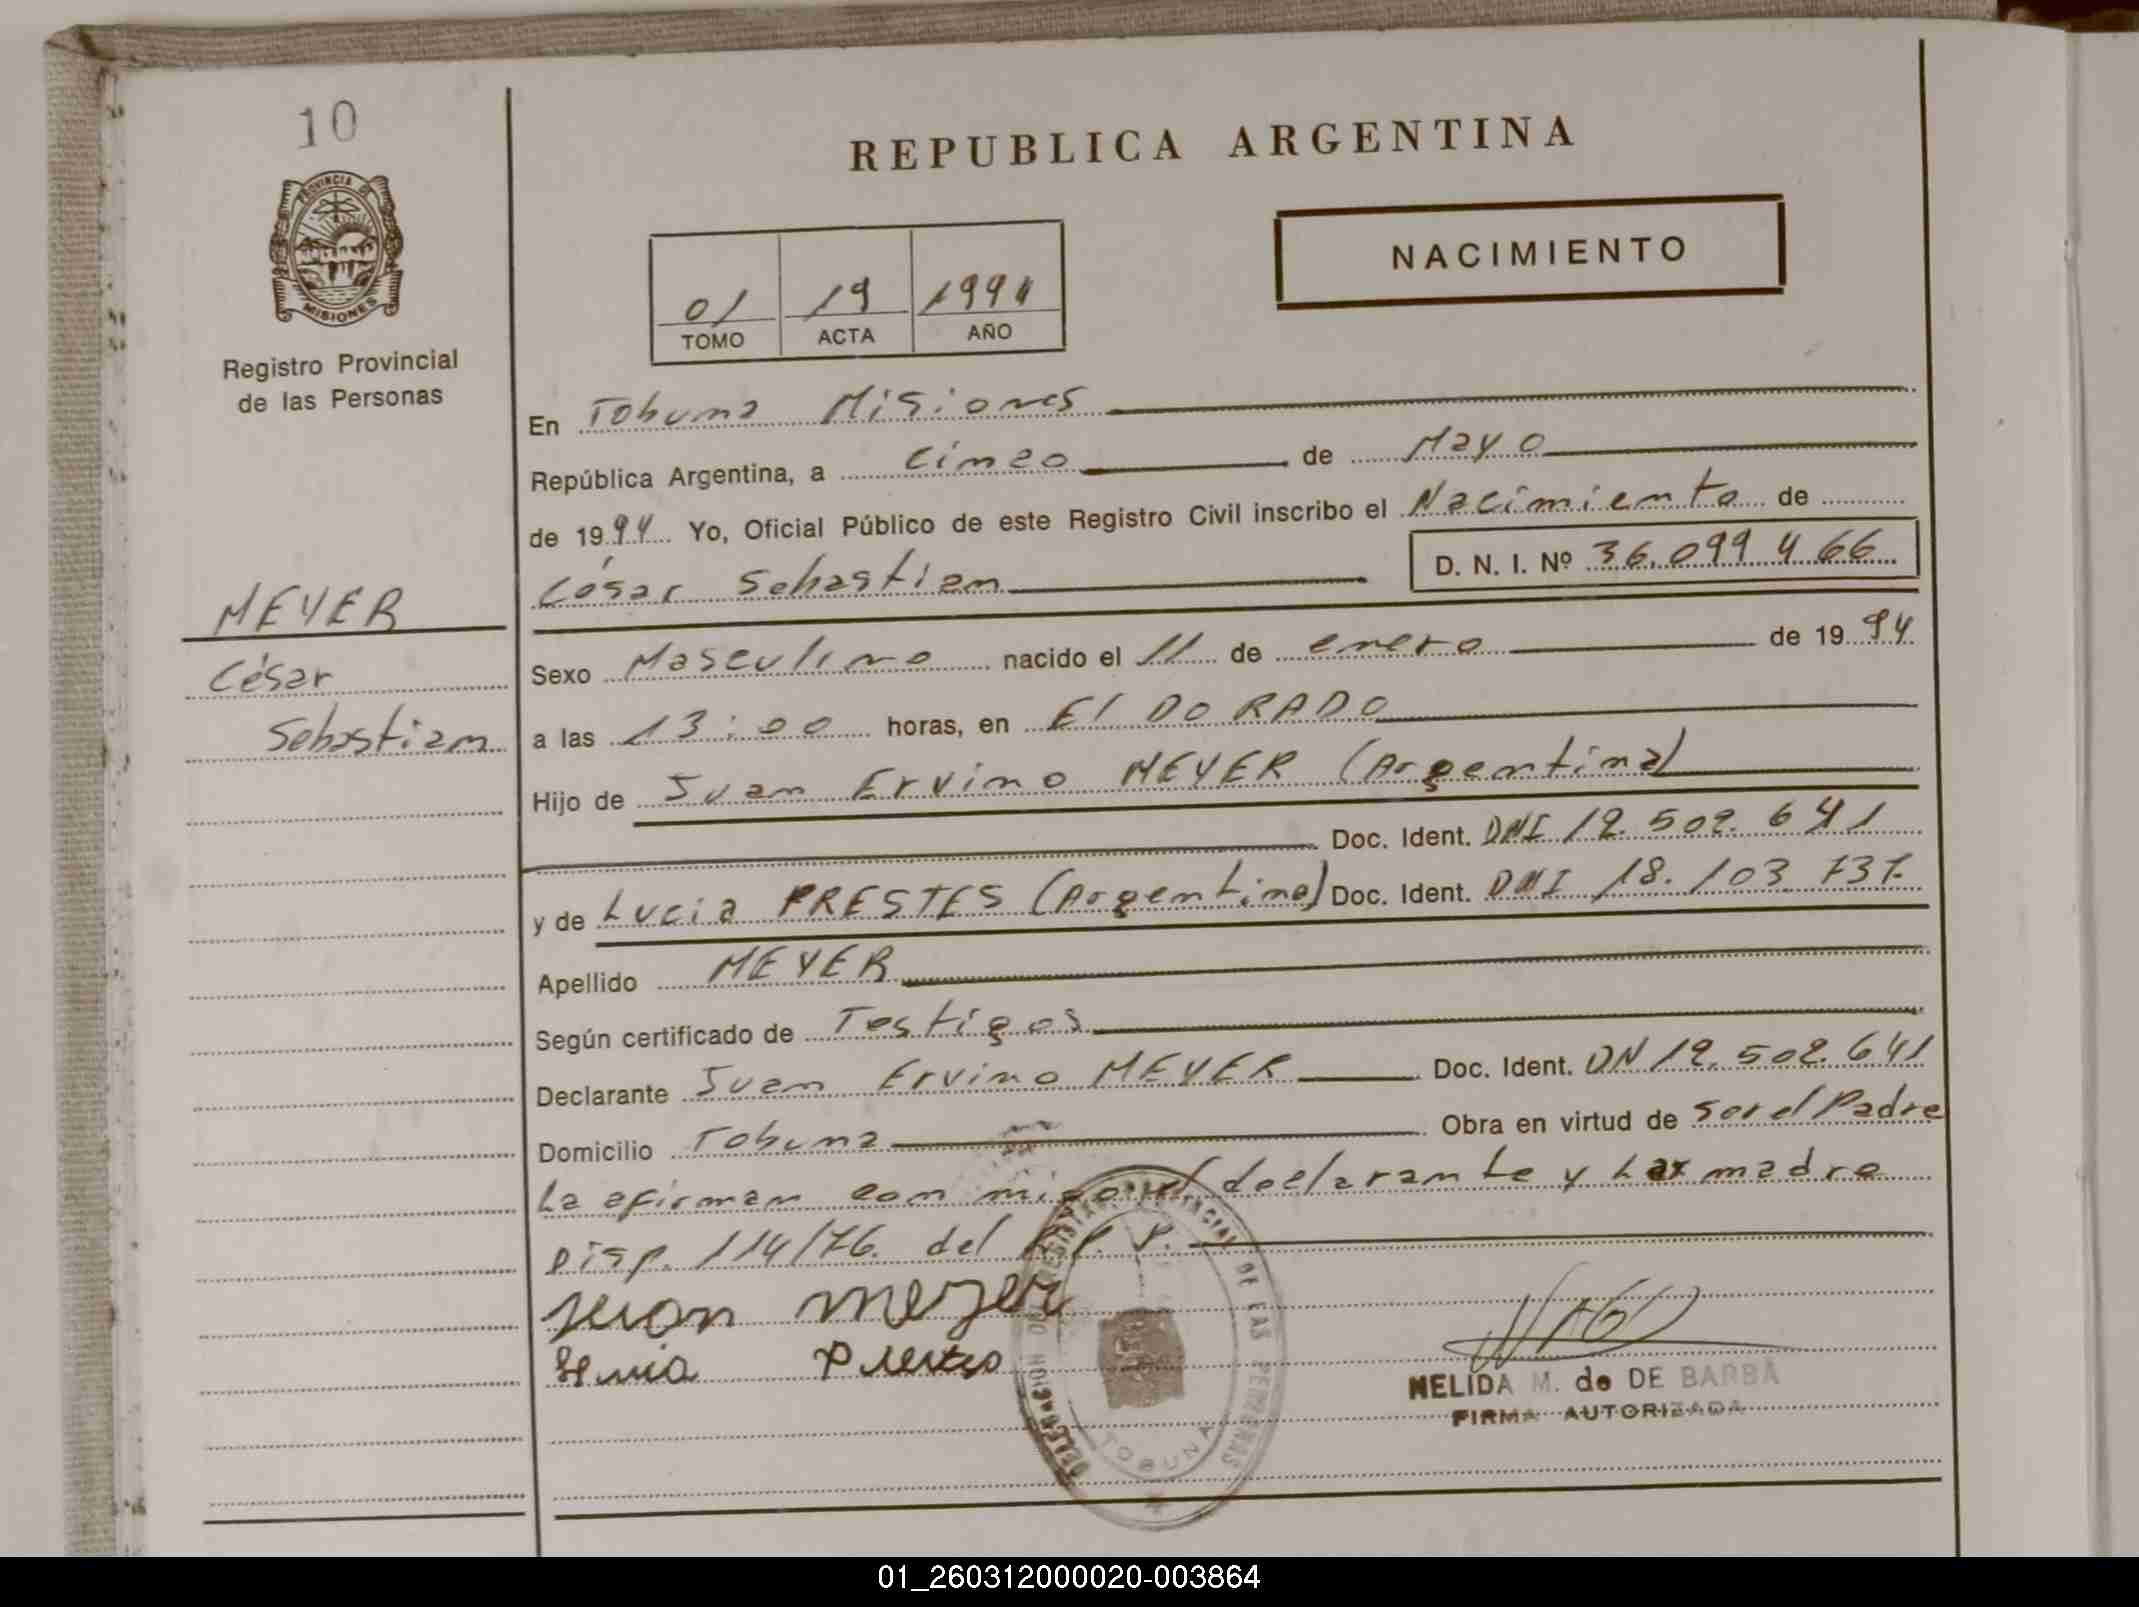 10
REPUBLICA ARGENTINA
PROVINCIA DE
MISIONES
NACIMIENTO
01 19 1994
TOMO ACTA AÑO
Registro Provincial
de las Personas
En Tobuna Misiones
República Argentina, a Cinco de Mayo
de 1994 Yo, Oficial Público de este Registro Civil inscribo el Nacimiento de
César Sebastian D. N. I. Nº 36.099.466
MEYER
César
Sebastian
Sexo Masculino nacido el 11 de enero de 1994
a las 13:00 horas, en El DORADO
Hijo de Juan Ervino MEYER (Argentina)
Doc. Ident. DNI 12.502.641
y de Lucia PRESTES (Argentina) Doc. Ident. DNI 18.103.737
Apellido MEYER
Según certificado de Testigos
Declarante Juan Ervino MEYER Doc. Ident. DN 12.502.641
Domicilio Tobuna Obra en virtud de Ser el Padre
La afirman con migo el declarante y La madre
Disp. 114/76. del R.P.P.
Juan meyer
Prestes
DELEGACION DEL REGISTRO PROVINCIAL DE LAS PERSONAS
TOBUNA
NELIDA M. de DE BARBA
FIRMA AUTORIZADA
01_260312000020-003864